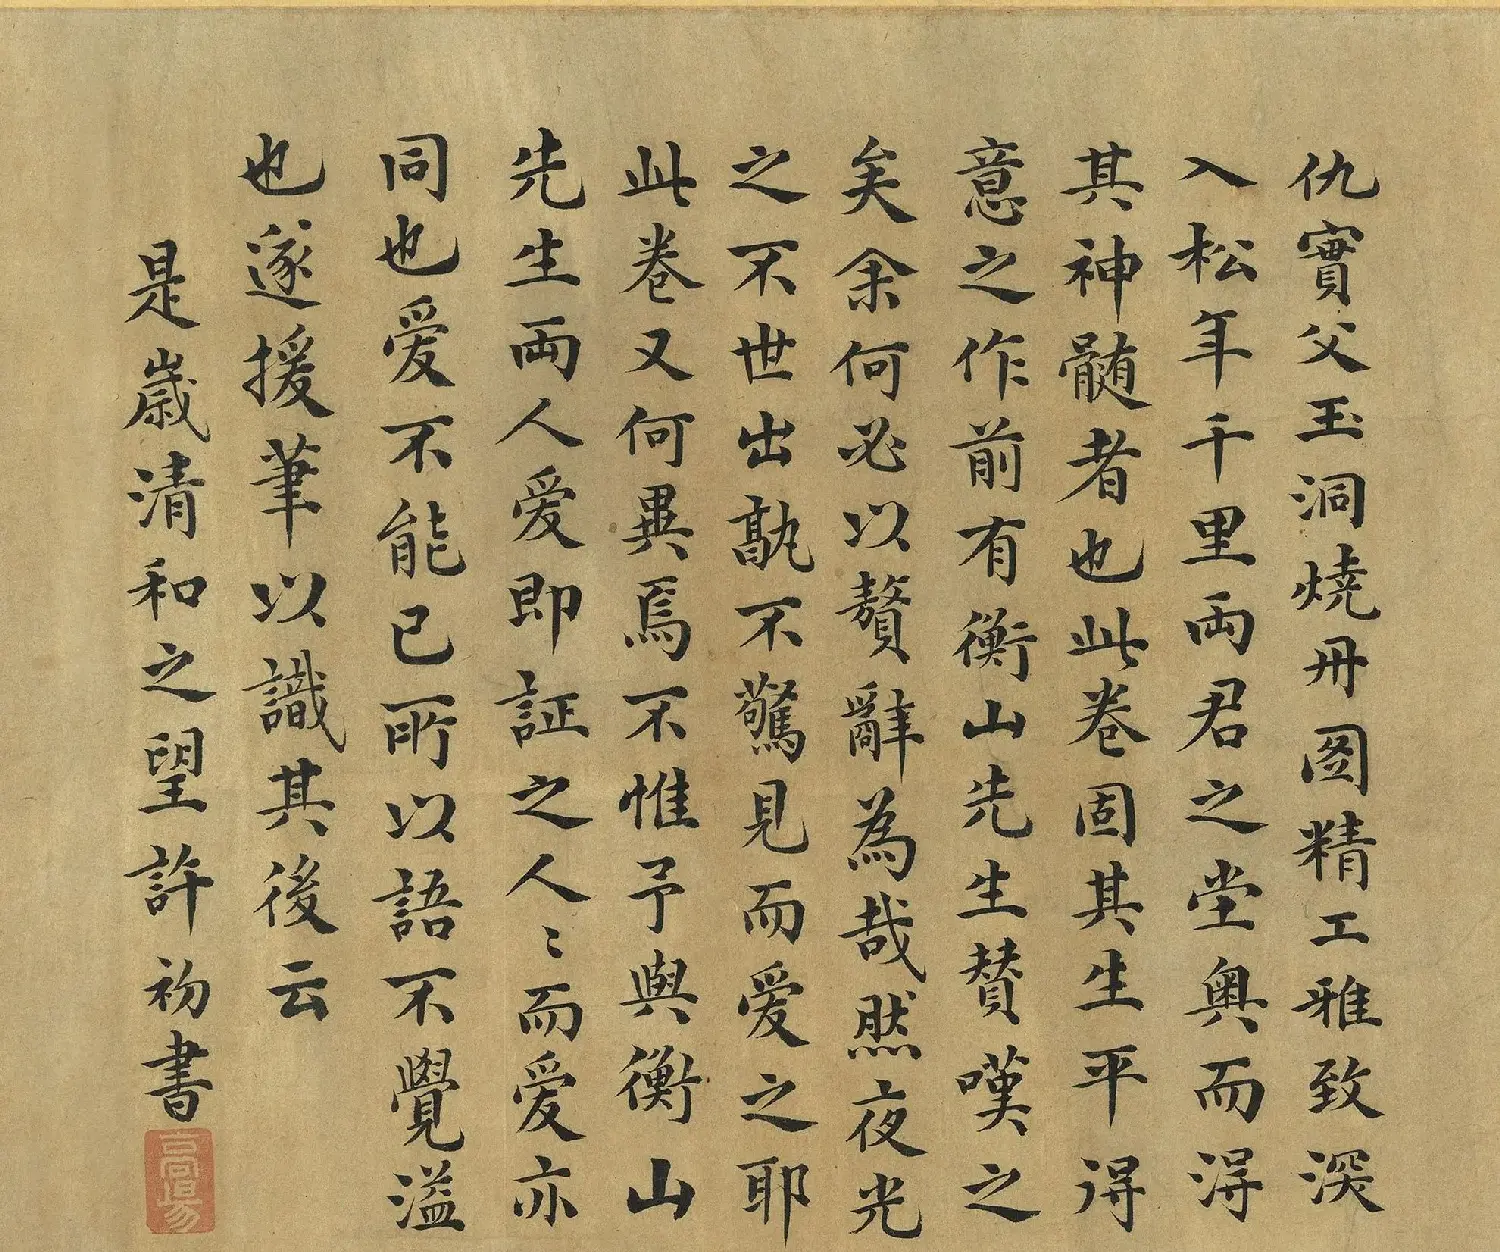 仇實父玉洞燒丹圖精工雅致深
入松年千里両君之堂奥而淂
其神髄者也此卷固其生平得
意之作前有衡山先生賛嘆之
矣余何必以贅辭為哉然夜光
之不世出孰不驚見而爱之耶
此卷又何異焉不惟予與衡山
先生両人爱即証之人〻而爱亦
同也爱不能已所以語不覺溢
也遂援筆以識其後云
是歳清和之望許初書